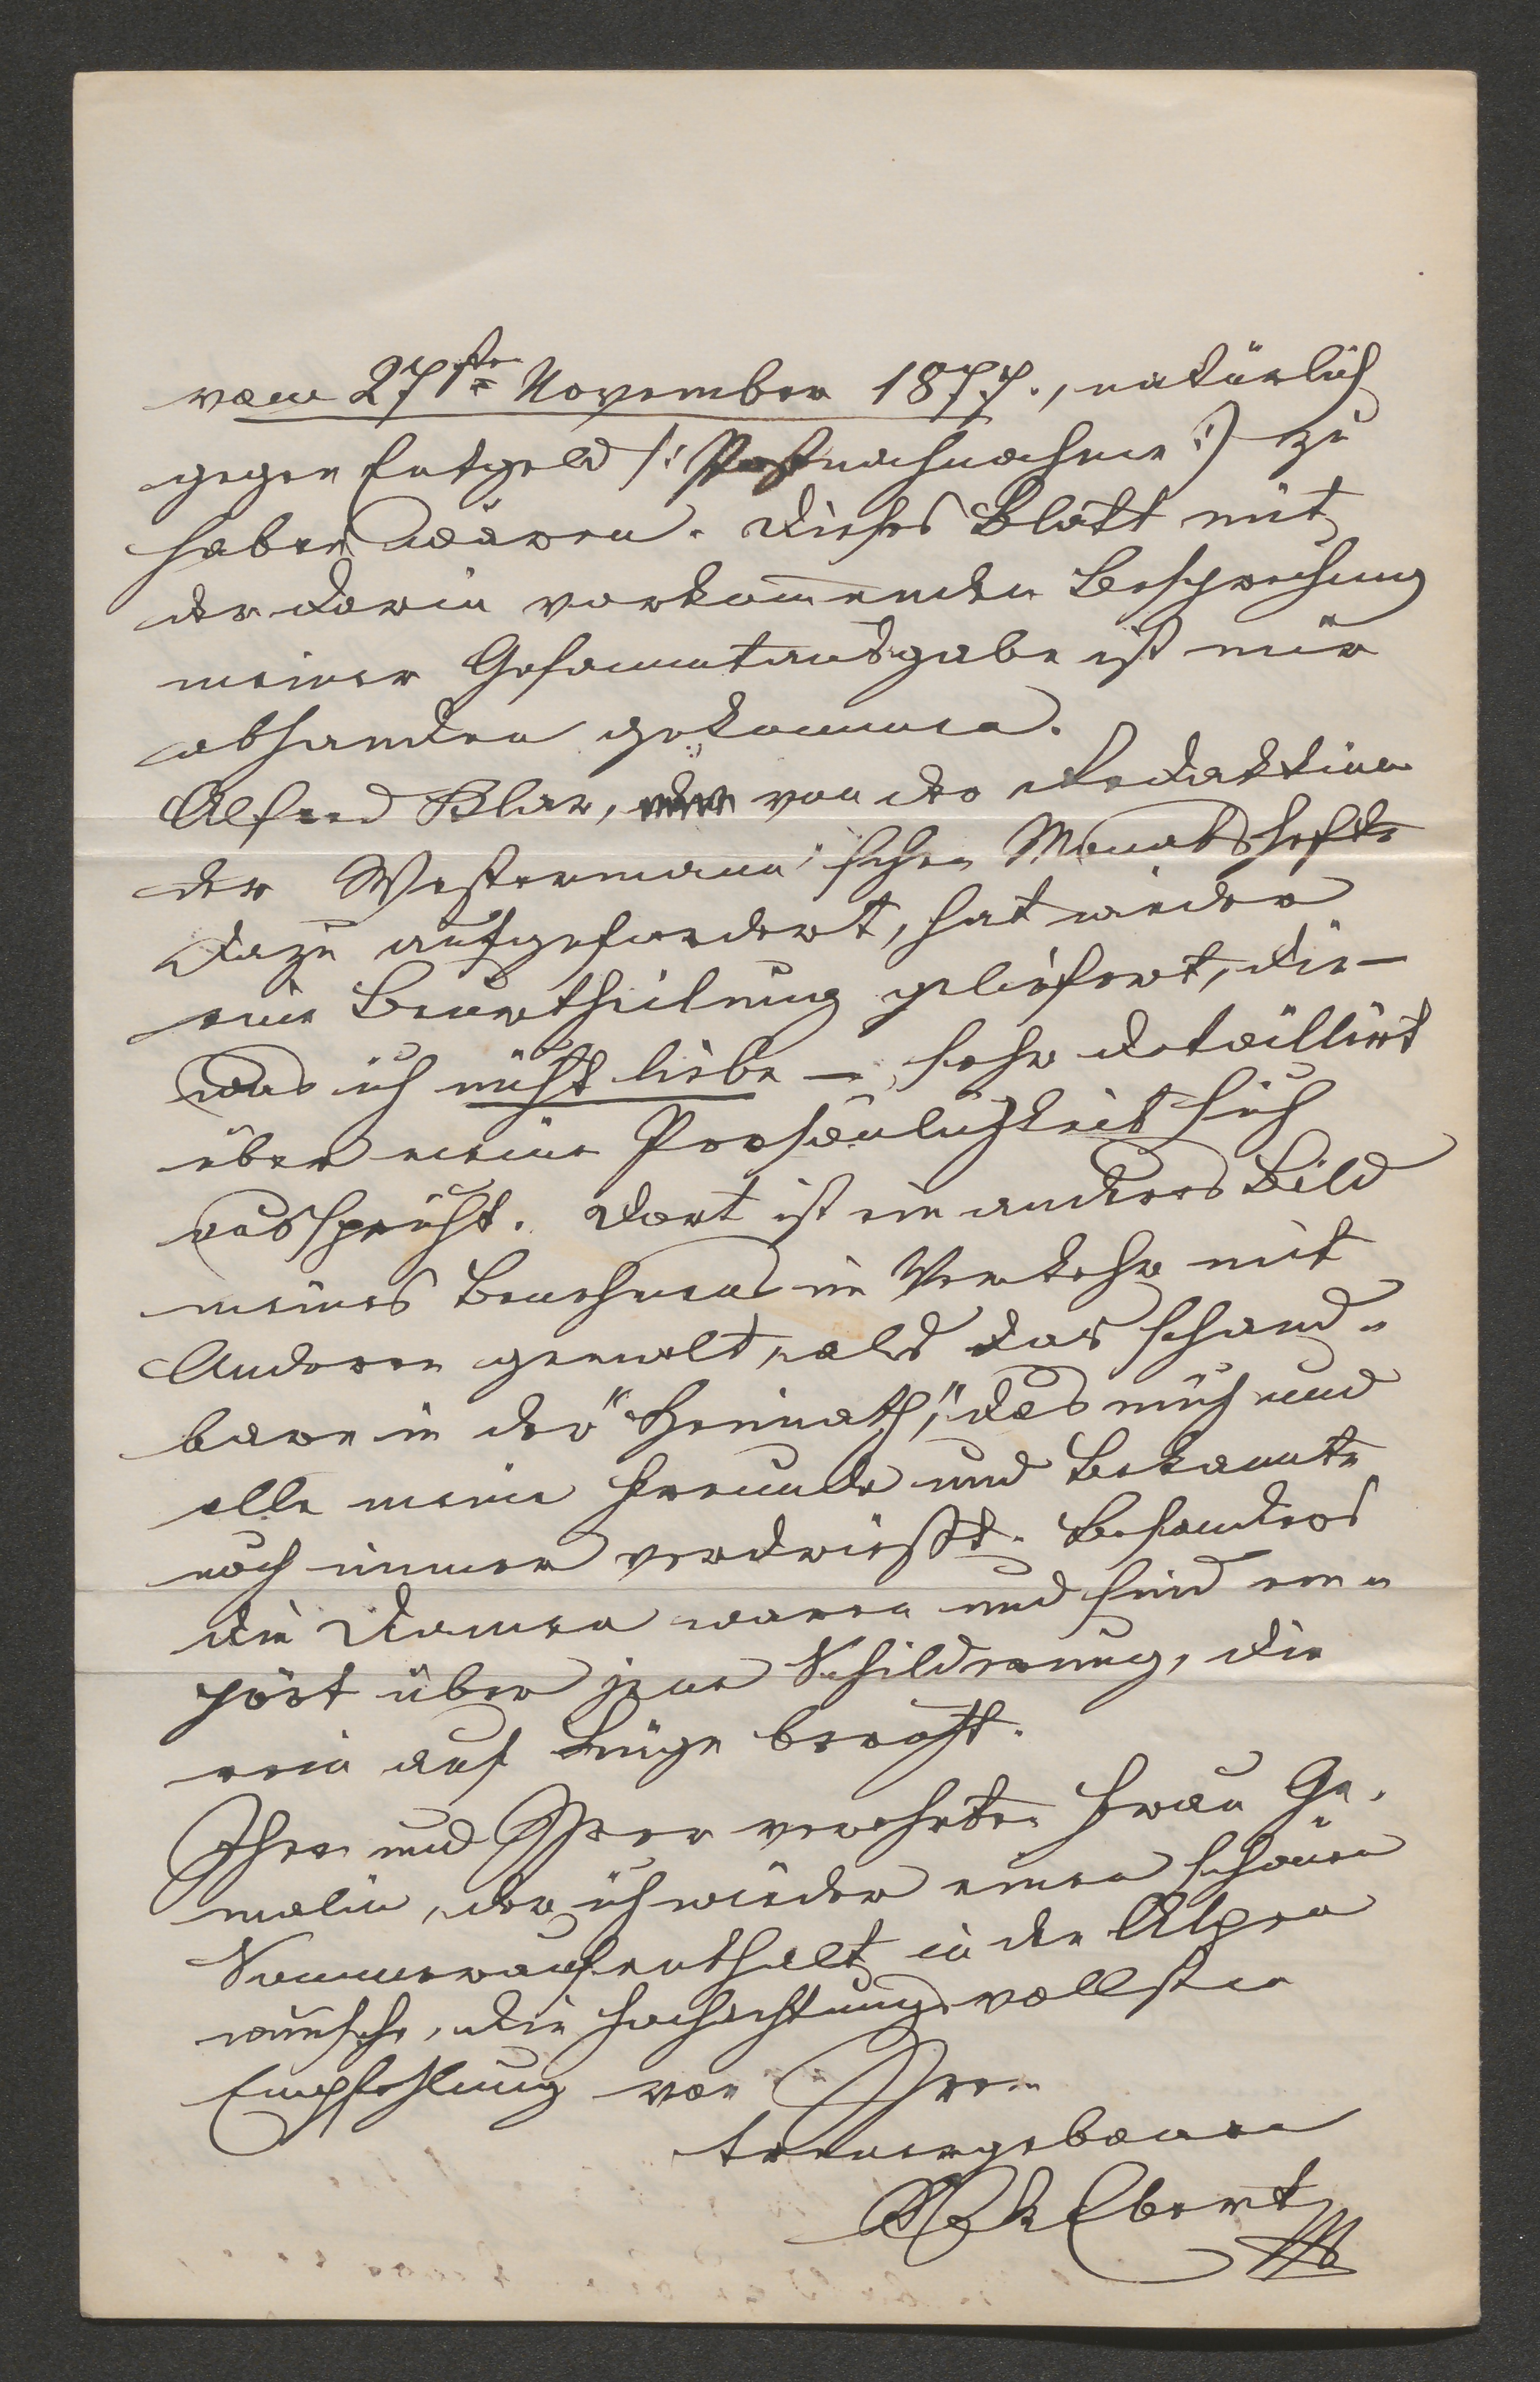 vom 27ten November 1877., natürlich
gegen Entgeld /: Postnachnahme :/ zu
haben wären. Dieses Blatt mit
der darin vorkommenden Besprechung
meiner Gesammtausgabe ist mir
abhanden gekommen.
Alfred Klar, von der Redaktion
der Westermann'schen Monatshefte
dazu aufgefordert, hat wieder
eine Beurtheilung geliefert, die –
was ich nicht liebe – sehr detaillirt
über meine Persönlichkeit sich
ausspricht. Dort ist ein anderes Bild
meines Benehmens im Verkehr mit
Anderen gemalt, als das schand-
bare in der "Heimath", das mich und
alle meine Freunde und Bekannte
noch immer verdrießt. Besonders
die Damen waren und sind em-
pört über jene Schilderung, die
rein auf Lüge beruht.
Ihnen und Ihrer verehrten Frau Ge-
malin, der ich wieder einen schönen
Sommeraufenthalt in den Alpen
wünsche, die hochachtungsvollsten
Empfehlung von Ihrem
treuergebenen
Ebert